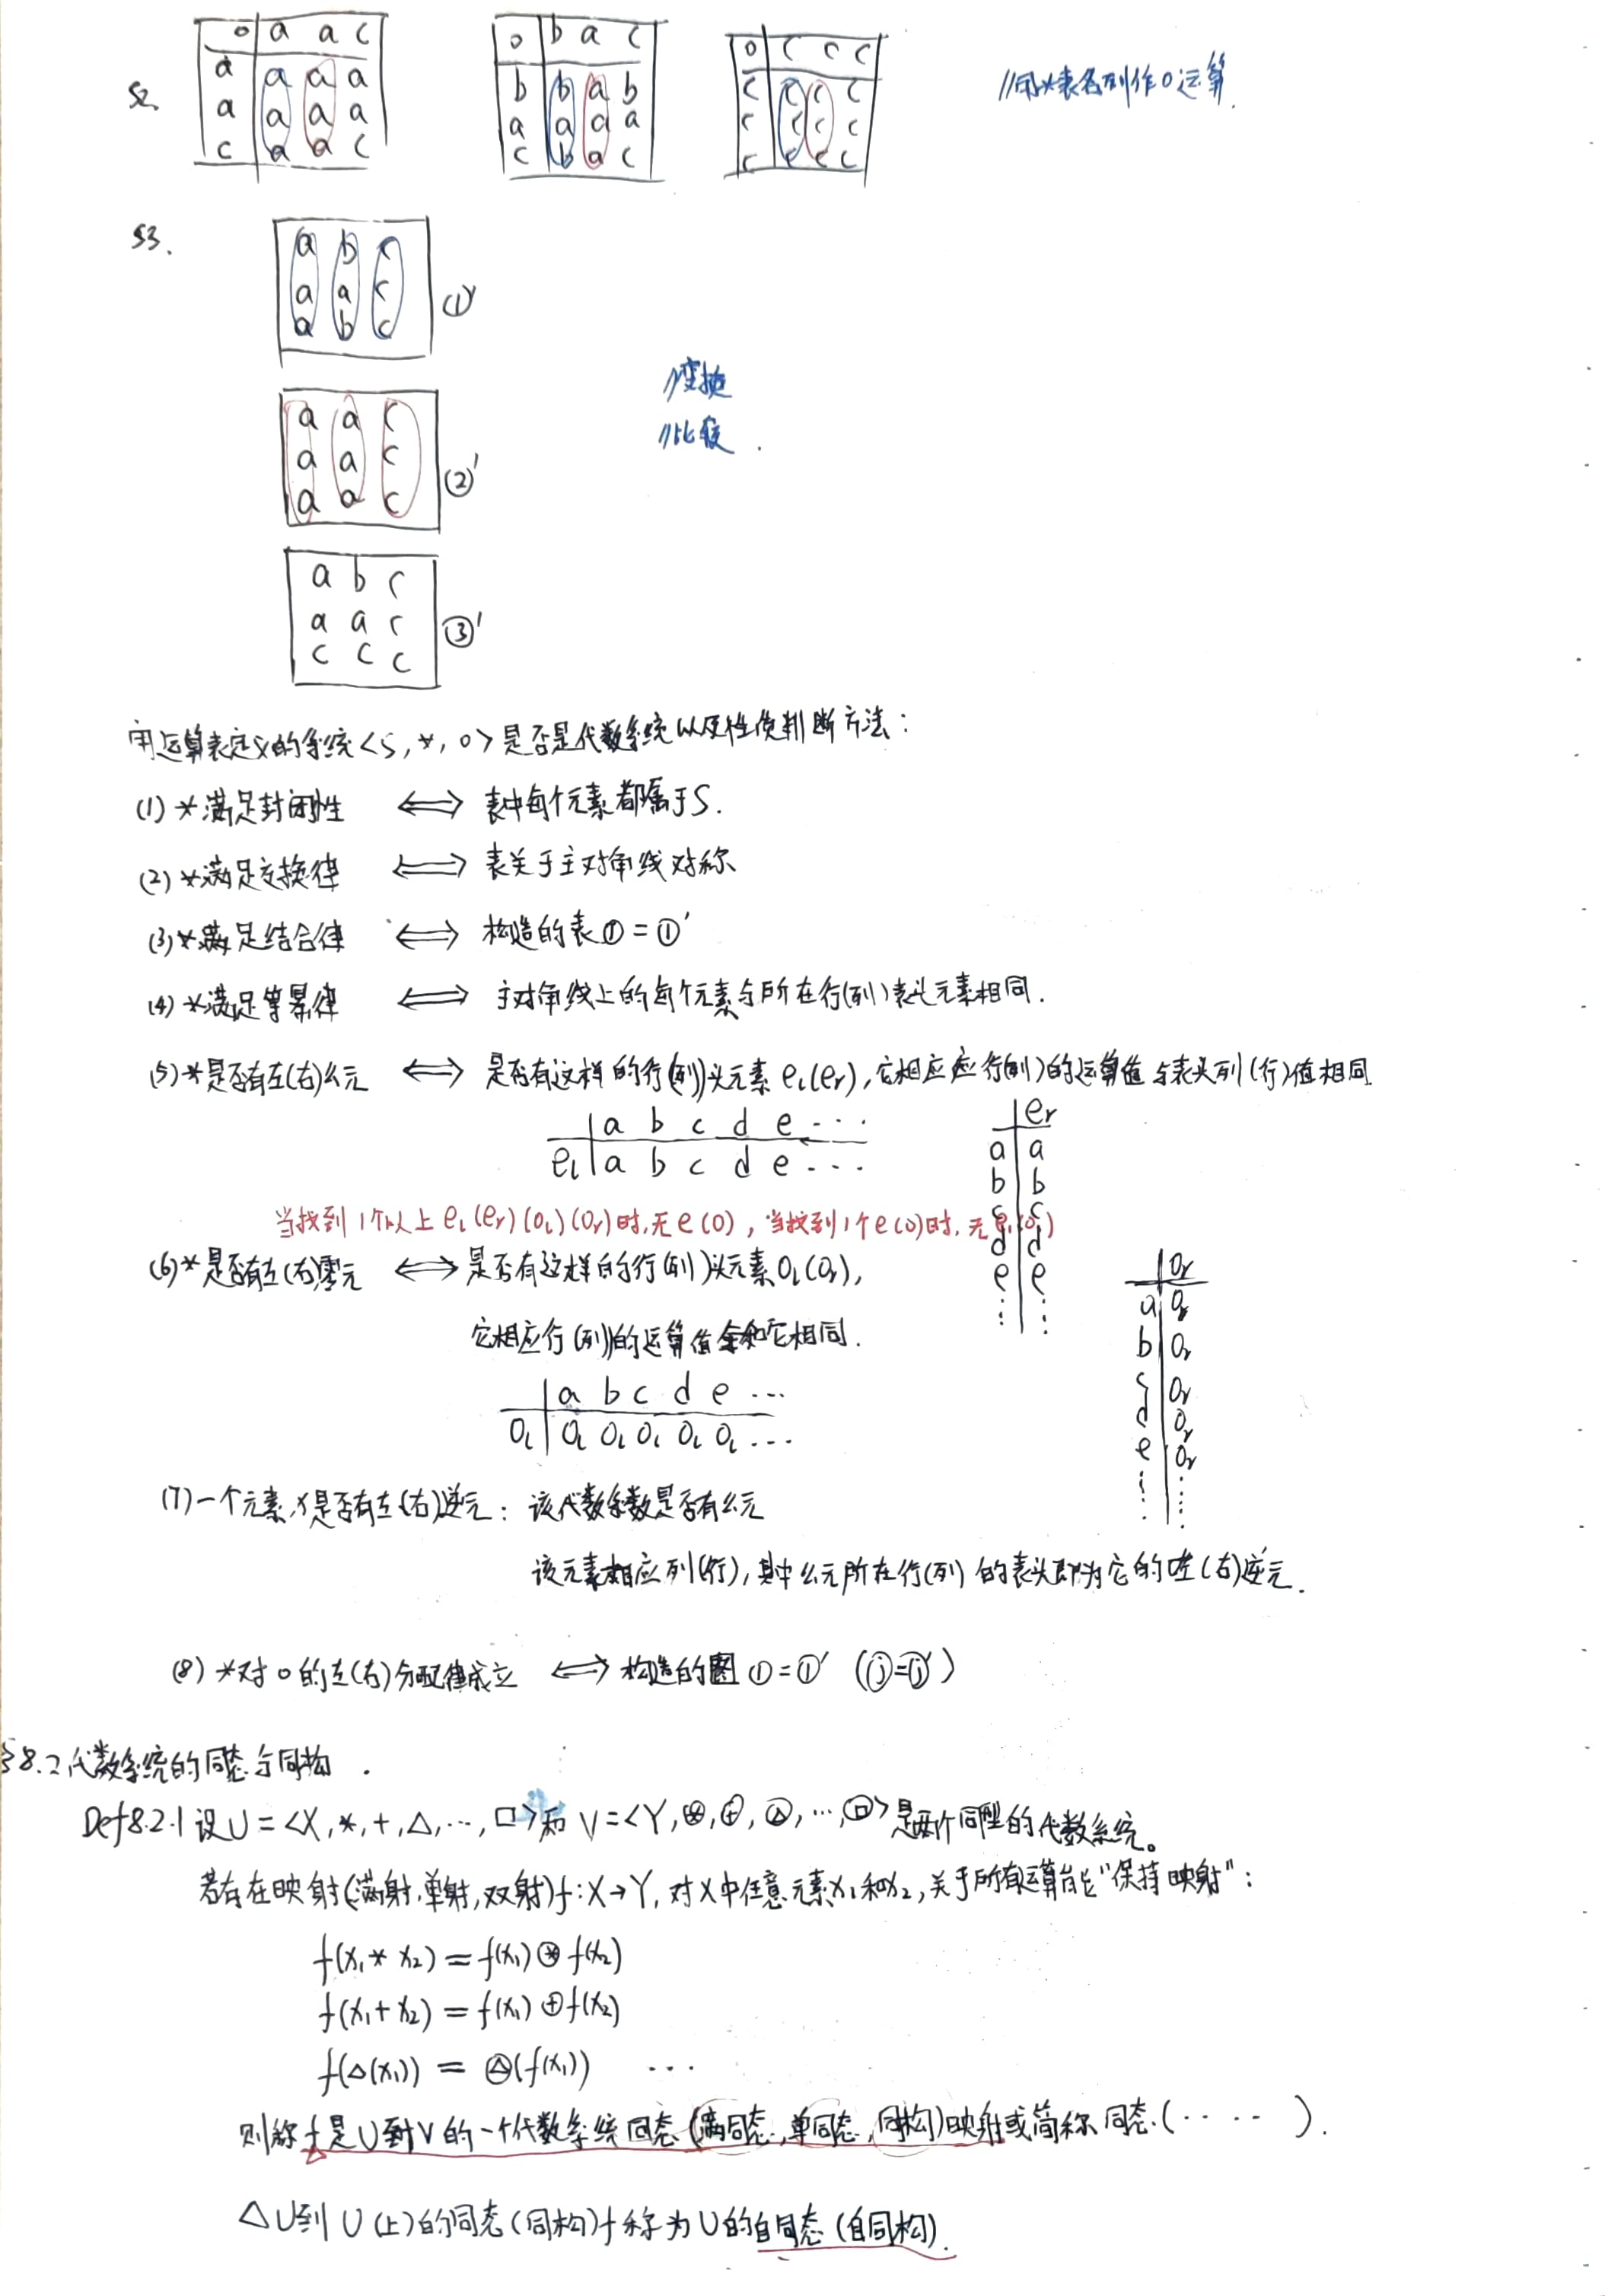 S2.
o a a c
a a a a
a a a a
c a a c
o b a c
b b a b
a a a a
c b a c
o c c c
c c c c
c c c c
c c c c
//用*表各列作o运算.
S3.
a b c
a a c
a b c
①'
a a c
a a c
a a c
②'
//变换
//比较.
a b c
a a c
c c c
③'
用运算表定义的系统<S,*,o>是否是代数系统以及性质判断方法:
(1) *满足封闭性 ⟺ 表中每个元素都属于S.
(2) *满足交换律 ⟺ 表关于主对角线对称
(3) *满足结合律 ⟺ 构造的表①=①'
(4) *满足等幂律 ⟺ 主对角线上的每个元素与所在行(列)表头元素相同.
(5) *是否有左(右)幺元 ⟺ 是否有这样的行(列)头元素eₗ(eᵣ),它相应行(列)的运算值与表头列(行)值相同
a b c d e ...
eₗ a b c d e ...
eᵣ
a a
b b
c c
d d
e e
⋮ ⋮
当找到1个以上eₗ(eᵣ)(0ₗ)(0ᵣ)时,无e(0),当找到1个e(0)时,无eₗ(0ₗ)
(6) *是否有左(右)零元 ⟺ 是否有这样的行(列)头元素0ₗ(0ᵣ),
它相应行(列)的运算值全和它相同.
a b c d e ...
0ₗ 0ₗ 0ₗ 0ₗ 0ₗ 0ₗ ...
0ᵣ
a 0ᵣ
b 0ᵣ
c 0ᵣ
d 0ᵣ
e 0ᵣ
⋮ ⋮
(7)一个元素x是否有左(右)逆元: 该代数系数是否有幺元
该元素相应列(行),其中幺元所在行(列)的表头即为它的左(右)逆元.
(8) *对o的左(右)分配律成立 ⟺ 构造的图①=①' (ⓙ=ⓙ')
§8.2代数系统的同态与同构.
Def8.2.1 设U=<X,*,+,△,…,□>和V=<Y,⊛,⊕,△⃝,…,□⃝>是两个同型的代数系统。
若存在映射(满射,单射,双射)f:X→Y,对X中任意元素x₁和x₂,关于所有运算能“保持映射”:
f(x₁*x₂)=f(x₁)⊛f(x₂)
f(x₁+x₂)=f(x₁)⊕f(x₂)
f(△(x₁))=△⃝(f(x₁)) …
则称f是U到V的一个代数系统同态(满同态,单同态,同构)映射或简称同态(·····).
△U到U(上)的同态(同构)f称为U的自同态(自同构).